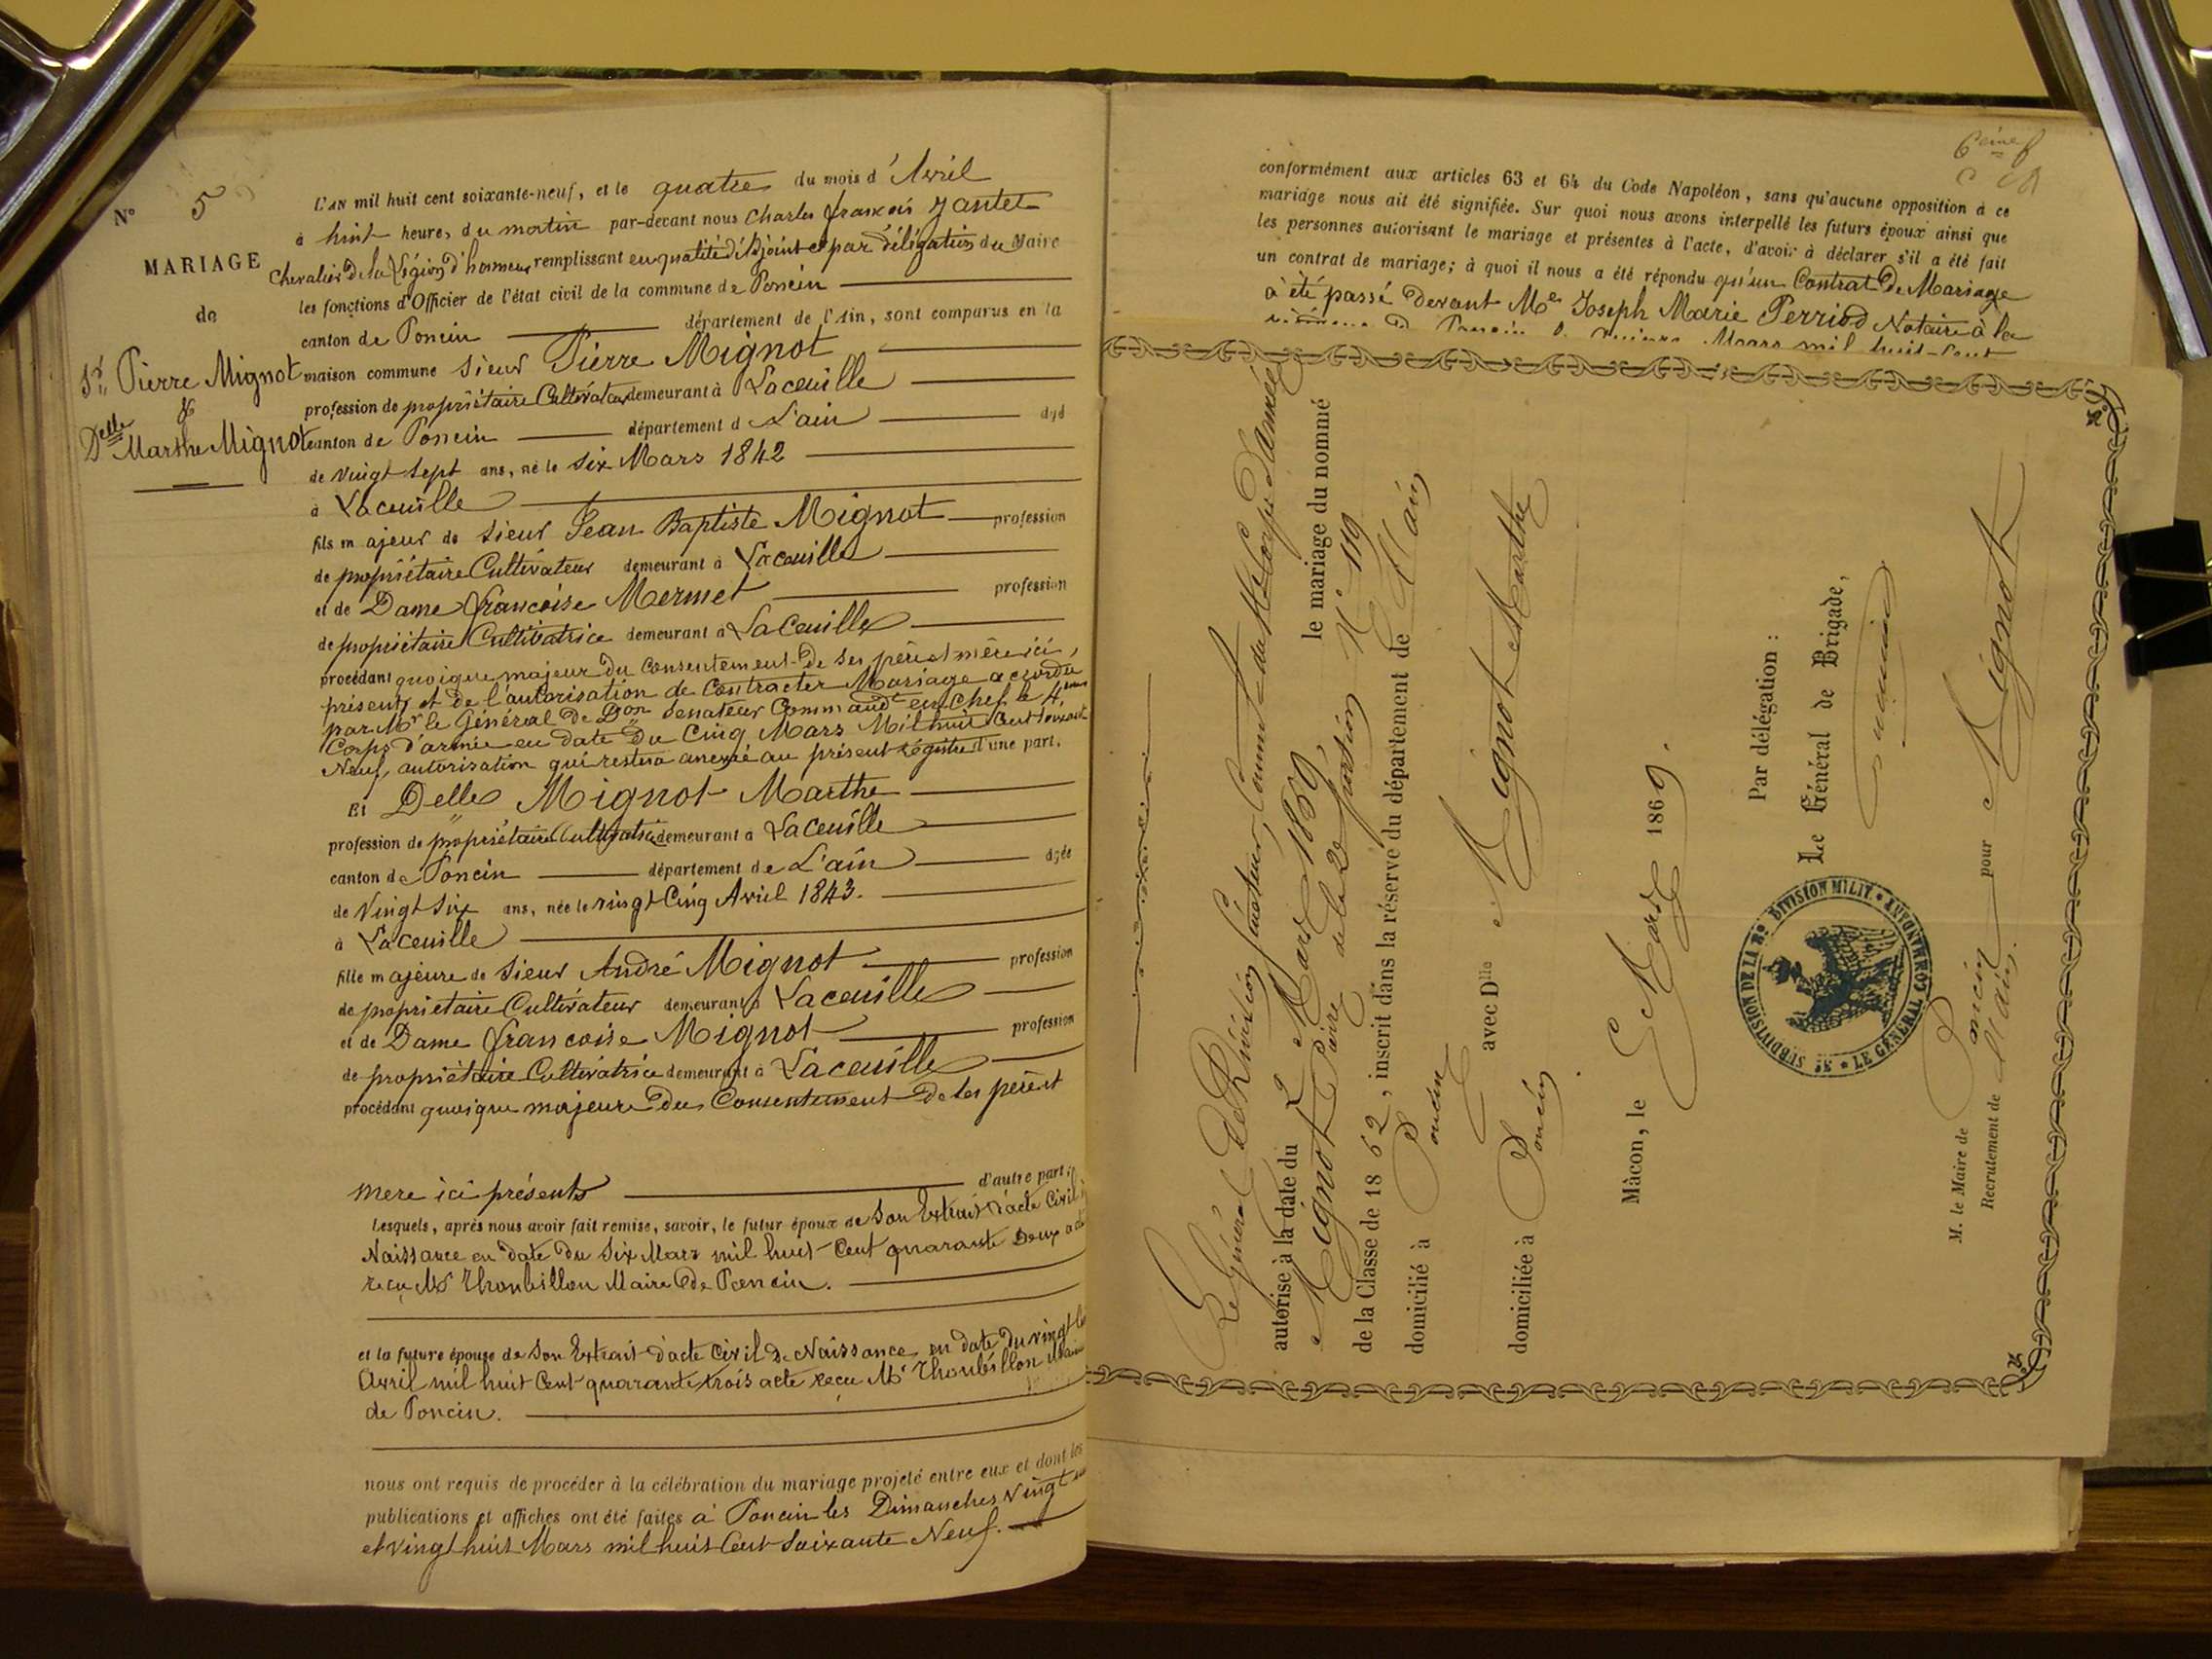 N° 5
MARIAGE
de
Sr. Pierre Mignot
&
Delle Marthe Mignot
L'AN mil huit cent soixante-neuf, et le quatre du mois d'Avril
à huit heures du matin par-devant nous Charles françois Jantet
Chevalier de la Légion d'honneur remplissant en qualité d'Adjoint et par délégation du Maire
les fonctions d'Officier de l'état civil de la commune de Poncin
canton de Poncin département de l'Ain, sont comparus en la
maison commune sieur Pierre Mignot
profession de propriétaire Cultivateur demeurant à Laceuille
canton de Poncin département d L'ain âgé
de vingt Sept ans, né le Six Mars 1842
à Laceuille
fils majeur de Sieur Jean Baptiste Mignot profession
de propriétaire Cultivateur demeurant à Laceuille
et de Dame françoise Mermet profession
de propriétaire Cultivatrice demeurant à Laceuille
procédant quoique majeur du Consentement de ses père et mère ici
présents et de l'autorisation de Contracter Mariage accordée
par Mr le Général de Don Senateur Commandt en Chef le 4eme
Corps d'armée en date Du Cinq Mars Mil huit Cent soixante
Neuf, autorisation qui restera anexée au présent régistre d'une part,
Et Delle Mignot Marthe
profession de propriétaire Cultivatrice demeurant à Laceuille
canton de Poncin département de L'ain âgée
de Vingt Six ans, née le vingt Cinq Avril 1843.
à Laceuille
fille majeure de Sieur André Mignot profession
de propriétaire Cultivateur demeurant à Laceuille
et de Dame françoise Mignot profession
de propriétaire Cultivatrice demeurant à Laceuille
procédant quoique majeure du Consentement de ses père et
mere ici présents d'autre part;
Lesquels, après nous avoir fait remise, savoir, le futur époux de Son Extrait d'acte Civil
Naissance en date du Six Mars mil huit Cent quarante Deux acte
reçu Mr Thoubillon Maire de Poncin.
et la future épouse de Son Extrait d'acte Civil de Naissance en date du vingt
Avril mil huit Cent quarante trois acte reçu Mr Thoubillon Maire
de Poncin.
nous ont requis de procéder à la célébration du mariage projeté entre eux et dont les
publications et affiches ont été faites à Poncin les Dimanches Vingt un
et vingt huit Mars mil huit Cent Soixante Neuf.
6eme f
conformément aux articles 63 et 64 du Code Napoléon, sans qu'aucune opposition à ce
mariage nous ait été signifiée. Sur quoi nous avons interpellé les futurs époux ainsi que
les personnes autorisant le mariage et présentes à l'acte, d'avoir à déclarer s'il a été fait
un contrat de mariage; à quoi il nous a été répondu qu'un Contrat De Mariage
à été passé devant Me Joseph Marie Perriod Notaire à la
Mars mil huit-Cent
Le Général de Division Sénateur, Commandt du 4e Corps d'armée
autorise à la date du 2 Mars 1869, le mariage du nommé
Mignot Pierre de la 2e portion N° 119
de la Classe de 1862, inscrit dans la réserve du département de l'Ain
domicilié à Poncin
avec Dlle Mignot Marthe
domiciliée à Poncin
Mâcon, le 5 Mars 1869.
Par délégation :
Le Général de Brigade,
3e SUBDIVISION DE LA 8e DIVISION MILIT. * LE GÉNÉRAL COMMANDANT *
M. le Maire de Poncin pour Mignot
Recrutement de l'Ain.